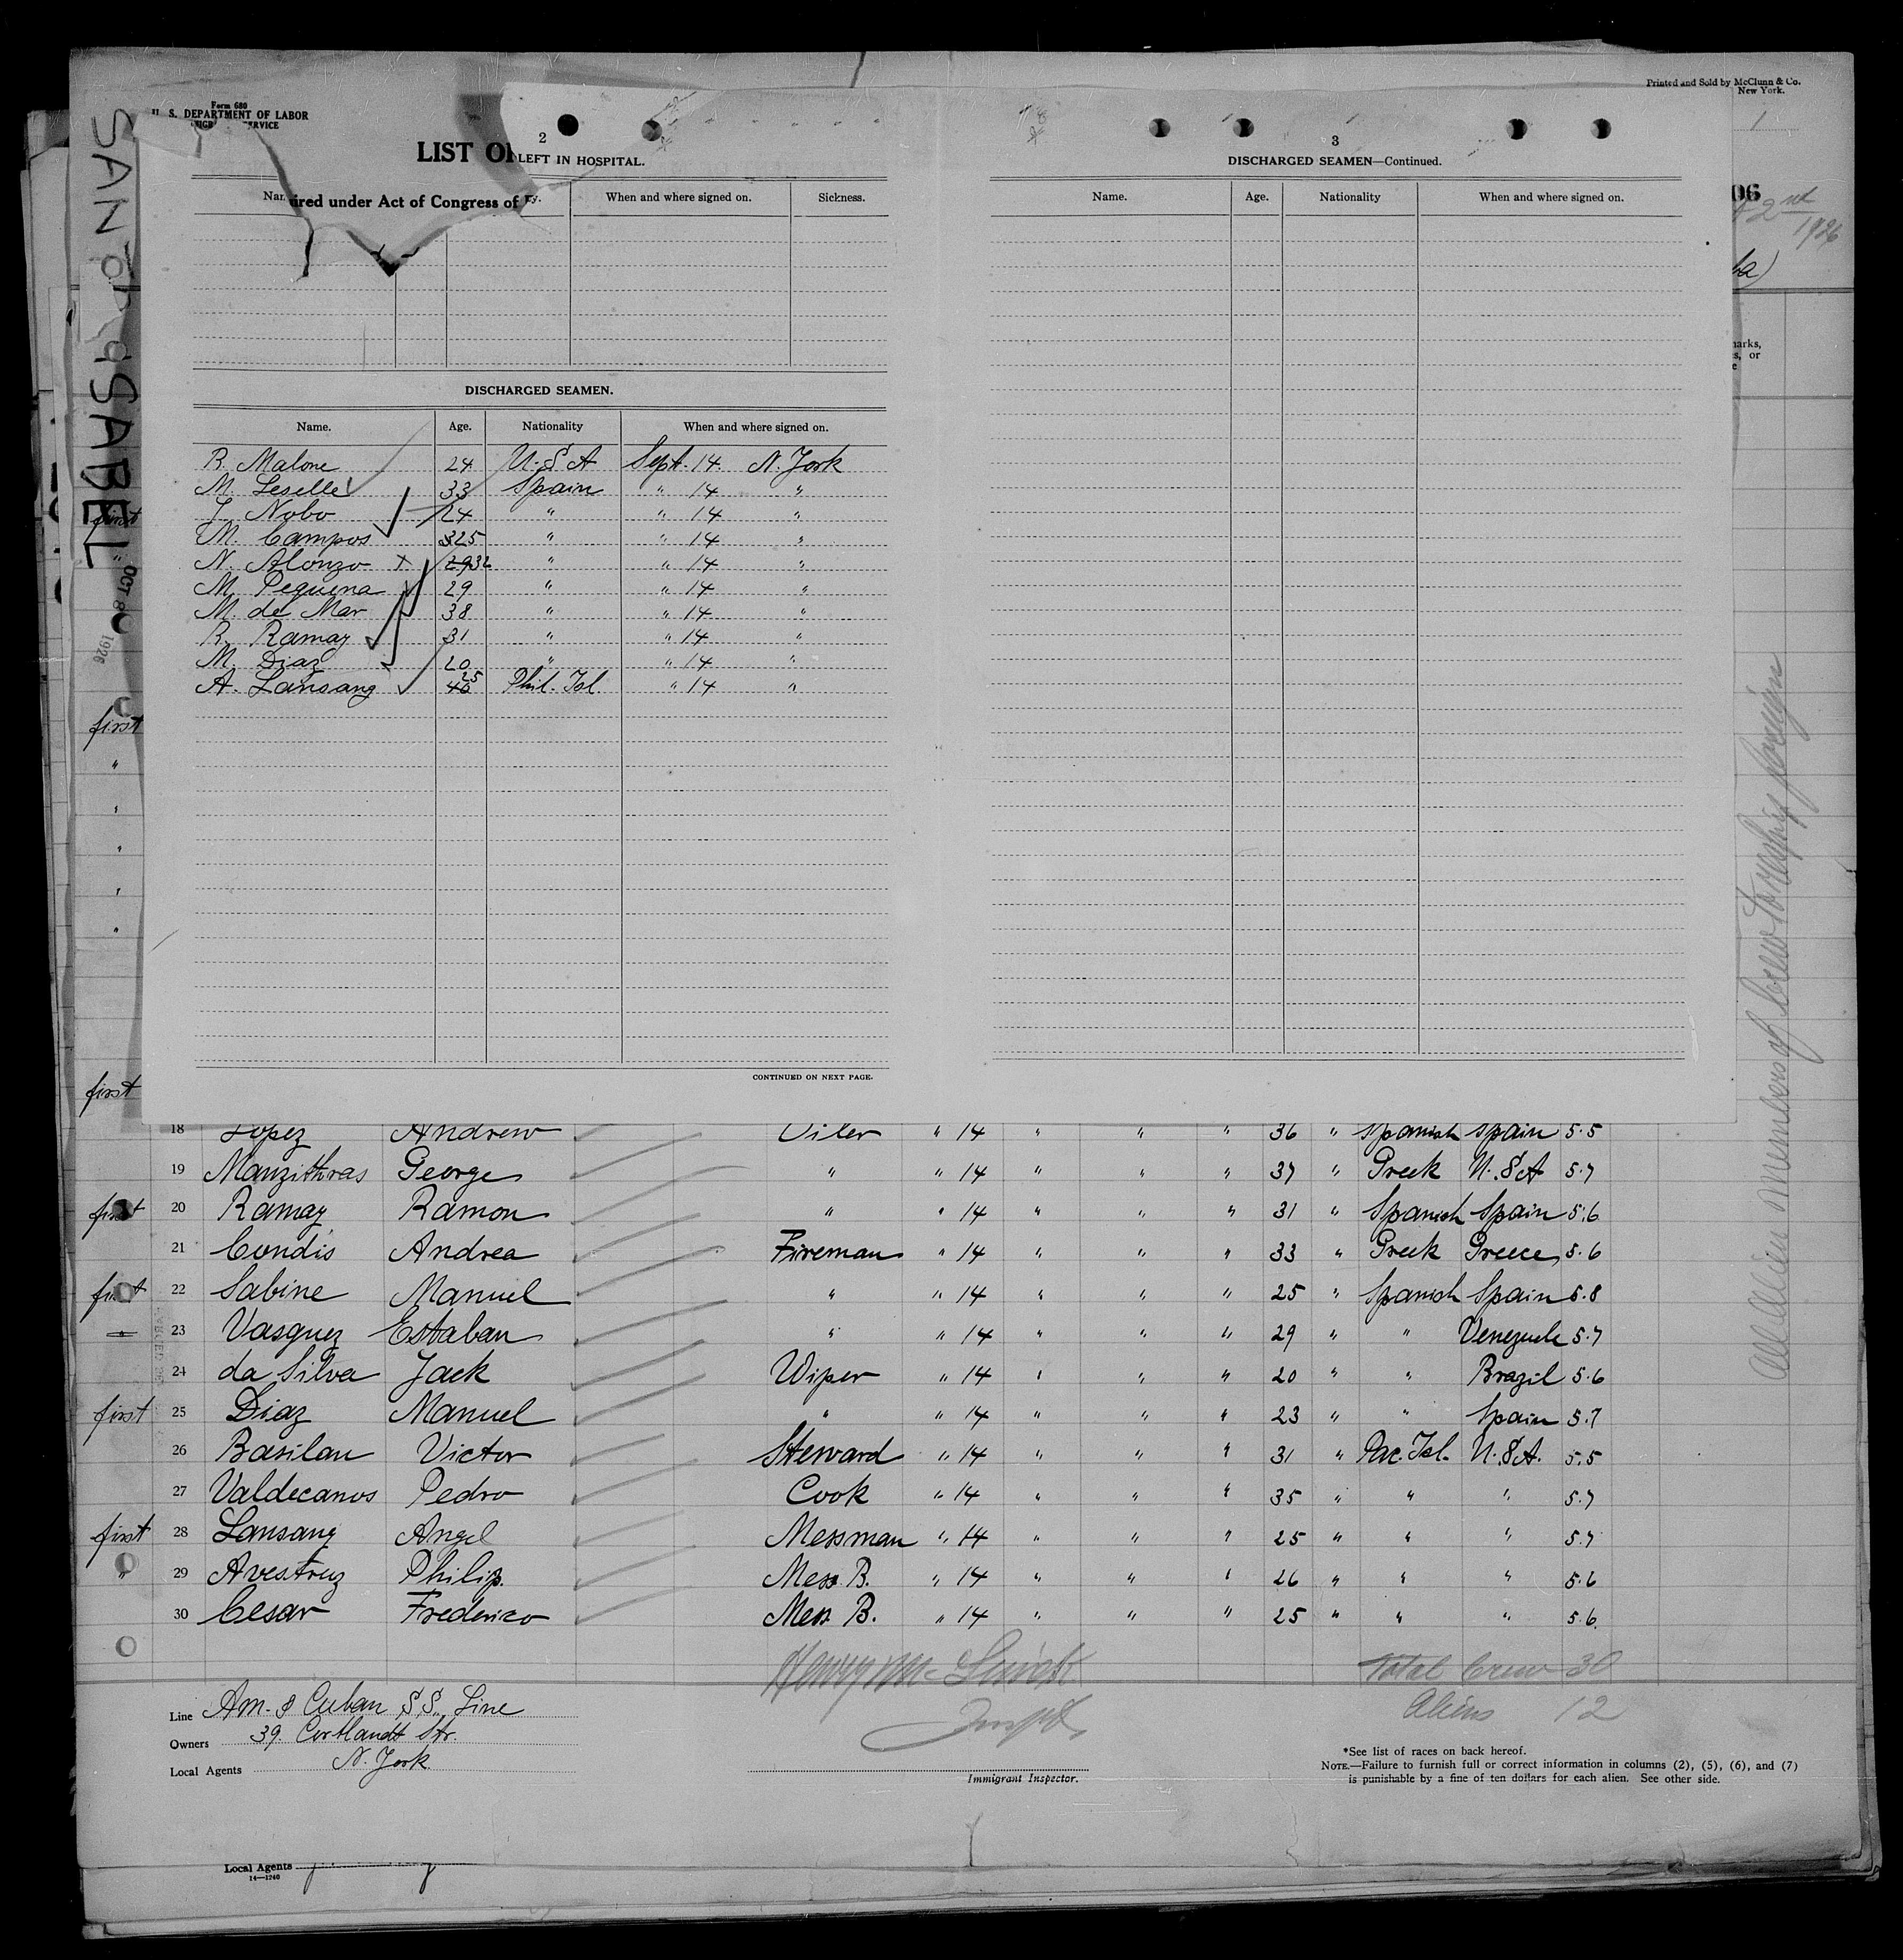 Printed and Sold by McClunn & Co.
New York.
Form 680
U. S. DEPARTMENT OF LABOR
LIST OF
2
LEFT IN HOSPITAL.
ired under Act of Congress of
When and where signed on.
Sickness.
DISCHARGED SEAMEN.
Name. Age. Nationality When and where signed on.
B. Malone 24 U.S.A Sept. 14. N. York
M. Leselle 33 Spain " 14 "
J. Nobo 24 " " 14 "
M. Campos 325 " " 14 "
N. Alonzo x 29 32 " " 14 "
M. Pequena 29 " " 14 "
M. de Mar 38 " " 14 "
R. Ramay 31 " " 14 "
M. Diaz 20 " " 14 "
A. Lansang 46 25 Phil. Isl. " 14 "
CONTINUED ON NEXT PAGE.
3
DISCHARGED SEAMEN—Continued.
Name. Age. Nationality When and where signed on.
1
06
2nd
1926
ba)
SAN
ISABEL
OCT 8
1926
first
first
"
"
"
"
"
first
18 Lopez Andrew Oiler " 14 " " " 36 " Spanish Spain 5.5
19 Manzithras George " " 14 " " " 37 " Greek U.S.A 5.7
first 20 Ramay Ramon " " 14 " " " 31 " Spanish Spain 5.6
21 Condis Andrea Fireman " 14 " " " 33 " Greek Greece 5.6
first 22 Sabine Manuel " " 14 " " " 25 " Spanish Spain 5.8
23 Vasquez Estaban " " 14 " " " 29 " " Venezuela 5.7
24 da Silva Jack Wiper " 14 " " " 20 " " Brazil 5.6
first 25 Diaz Manuel " " 14 " " " 23 " " Spain 5.7
26 Basilan Victor Steward " 14 " " " 31 " Pac. Isl. U.S.A. 5.5
27 Valdecanos Pedro Cook " 14 " " " 35 " " " 5.7
first 28 Lansang Angel Messman " 14 " " " 25 " " " 5.7
" 29 Avestruz Philip. Mess. B. " 14 " " " 26 " " " 5.6
30 Cesar Frederico Mess B. " 14 " " " 25 " " " 5.6
Total Crew 30
Aliens 12
Line Am. & Cuban S.S. Line
Owners 39. Cortlandt Str.
Local Agents N. York
Immigrant Inspector.
*See list of races on back hereof.
NOTE.—Failure to furnish full or correct information in columns (2), (5), (6), and (7)
is punishable by a fine of ten dollars for each alien. See other side.
Local Agents
14—1240